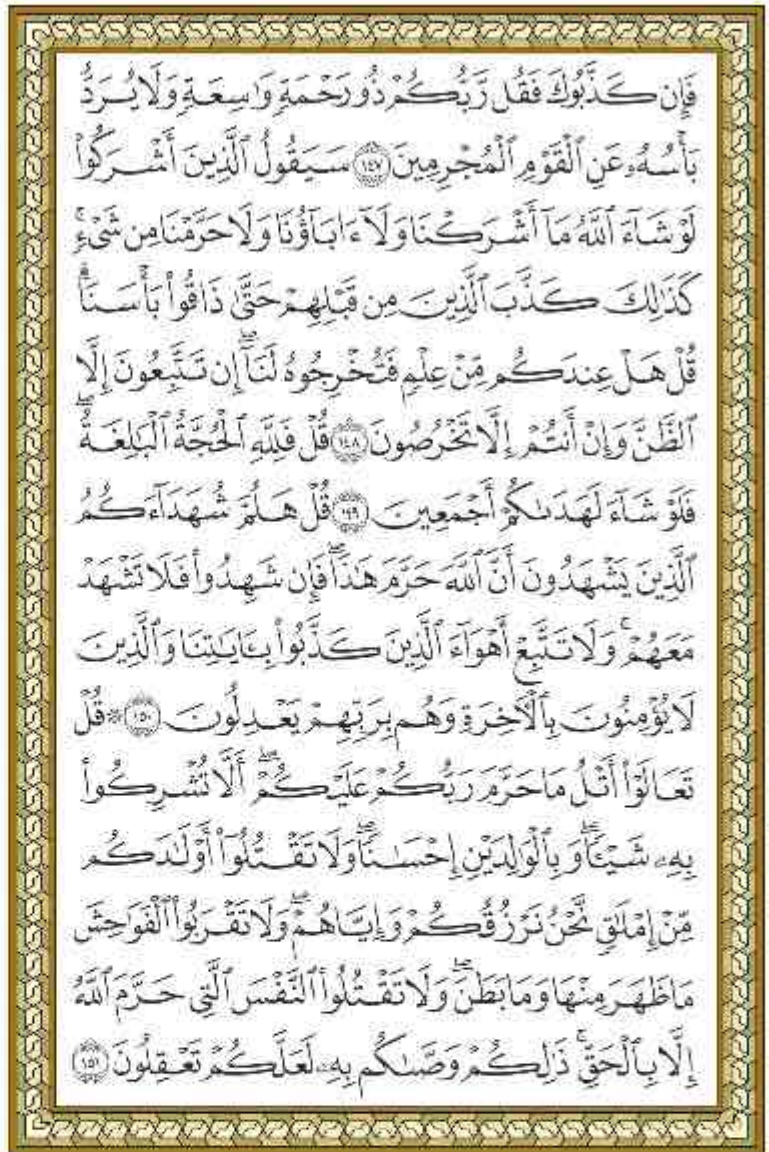 فَإِن كَذَّبُوكَ فَقُل رَّبُّكُمْ ذُو رَحْمَةٍ وَٰسِعَةٍ وَلَا يُرَدُّ
بَأْسُهُۥ عَنِ ٱلْقَوْمِ ٱلْمُجْرِمِينَ ١٤٧ سَيَقُولُ ٱلَّذِينَ أَشْرَكُوا۟
لَوْ شَآءَ ٱللَّهُ مَآ أَشْرَكْنَا وَلَآ ءَابَآؤُنَا وَلَا حَرَّمْنَا مِن شَىْءٍ ۚ
كَذَٰلِكَ كَذَّبَ ٱلَّذِينَ مِن قَبْلِهِمْ حَتَّىٰ ذَاقُوا۟ بَأْسَنَا ۗ
قُلْ هَلْ عِندَكُم مِّنْ عِلْمٍ فَتُخْرِجُوهُ لَنَآ ۖ إِن تَتَّبِعُونَ إِلَّا
ٱلظَّنَّ وَإِنْ أَنتُمْ إِلَّا تَخْرُصُونَ ١٤٨ قُلْ فَلِلَّهِ ٱلْحُجَّةُ ٱلْبَٰلِغَةُ ۖ
فَلَوْ شَآءَ لَهَدَىٰكُمْ أَجْمَعِينَ ١٤٩ قُلْ هَلُمَّ شُهَدَآءَكُمُ
ٱلَّذِينَ يَشْهَدُونَ أَنَّ ٱللَّهَ حَرَّمَ هَٰذَا ۖ فَإِن شَهِدُوا۟ فَلَا تَشْهَدْ
مَعَهُمْ ۚ وَلَا تَتَّبِعْ أَهْوَآءَ ٱلَّذِينَ كَذَّبُوا۟ بِـَٔايَٰتِنَا وَٱلَّذِينَ
لَا يُؤْمِنُونَ بِٱلْـَٔاخِرَةِ وَهُم بِرَبِّهِمْ يَعْدِلُونَ ١٥٠ ۞ قُلْ
تَعَالَوْا۟ أَتْلُ مَا حَرَّمَ رَبُّكُمْ عَلَيْكُمْ ۖ أَلَّا تُشْرِكُوا۟
بِهِۦ شَيْـًٔا ۖ وَبِٱلْوَٰلِدَيْنِ إِحْسَٰنًا ۖ وَلَا تَقْتُلُوٓا۟ أَوْلَٰدَكُم
مِّنْ إِمْلَٰقٍ ۖ نَّحْنُ نَرْزُقُكُمْ وَإِيَّاهُمْ ۖ وَلَا تَقْرَبُوا۟ ٱلْفَوَٰحِشَ
مَا ظَهَرَ مِنْهَا وَمَا بَطَنَ ۖ وَلَا تَقْتُلُوا۟ ٱلنَّفْسَ ٱلَّتِى حَرَّمَ ٱللَّهُ
إِلَّا بِٱلْحَقِّ ۚ ذَٰلِكُمْ وَصَّىٰكُم بِهِۦ لَعَلَّكُمْ تَعْقِلُونَ ١٥١